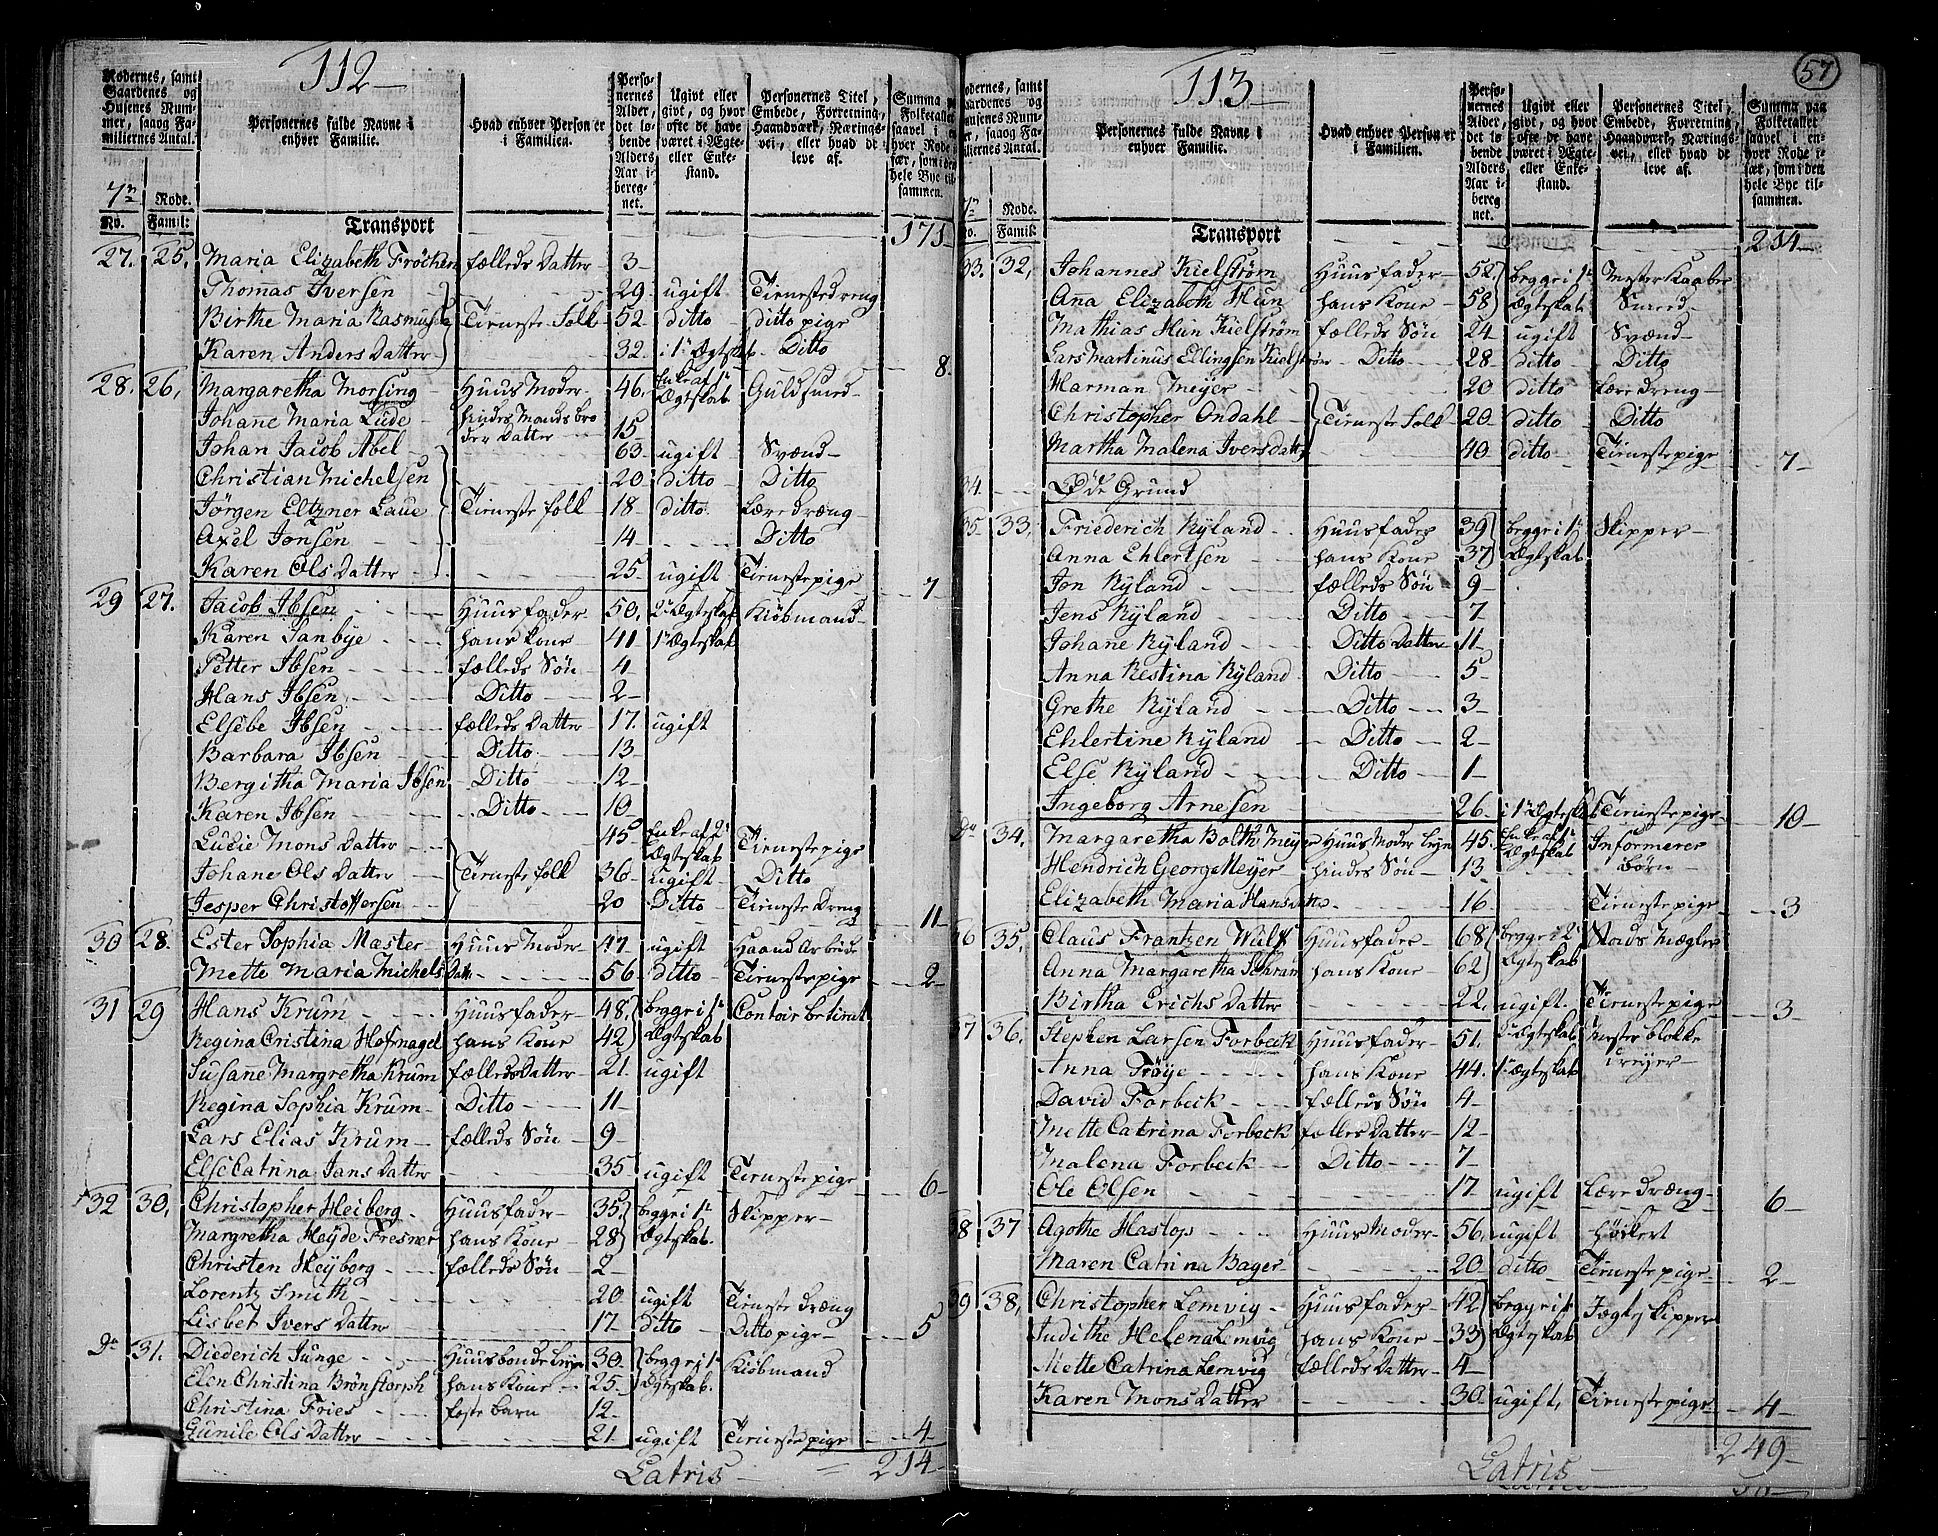 112
Rodernes, samt Gaardenes og Husenes Nummer, saaog Familiernes Antal.
Personernes fulde Navne i enhver Familie.
Hvad enhver Person er i Familien.
Personernes Alder, det løbende Alders Aar iberegnet.
Ugivt eller givt, og hvor ofte de have været i Ægte- eller Enkestand.
Personernes Titel, Embede, Forretning, Haandværk, Næringsvei, eller hvad de leve af.
7n Rode.
No. Famil:
Transport 171
27. 25. Maria Elizabeth Fröchen fælleds Datter 3
Thomas Iversen 29 ugift Tienestedreng
Birthe Maria Rasmusen Tieneste Folk 52 ditto ditto pige
Karen Anders Datter 32. i 1t Ægteskab Ditto 8.
28. 26, Margaretha Morsing Huus Moder 46. Enke af 1t Ægteskab Guldsmed
Johanne Maria Lude hindes Mands bro der Datter 15
Johan Jacob Abel 63 ugift Svænd
Christian Michelsen 20 ditto Ditto
Jörgen Eltzner Laue Tieneste folk 18 ditto Læredræng
Axel Jonsen 14 Ditto
Karen Ols Datter 25 ugift Tienestepige 7
29 27. Jacob Ibsen Huusfader 50. 2t Ægteskab Kiöbmand
Karen Sanbye hans kone 41 1t Ægteskab
Petter Ibsen fælleds Sön 4
Hans Ibsen Ditto 2
Elsebe Ibsen fælleds Datter 17. ugift
Barbara Ibsen Ditto 13
Bergitha Maria Ibsen Ditto 12
Karen Ibsen Ditto 10
Lucie Mons Datter 45 Enke af 2t Ægteskab Tienestepige
Johane Ols Datter Tieneste folk 36 ugift Ditto
Jesper Christoffersen 20 Ditto Tieneste Dreng 11
30 28. Ester Sophia Mæster Huus Moder 47 ugift Haand Arbeide
Mette Maria Michels Datter 56 ditto Tienestepige 2
31 29 Hans Krum Huusfader 48, begge i 1t Contoir betient
Regina Cristina Hofnagel hans Kone 42 Ægteskab
Susane Margretha Krum fælleds Datter 21. ugift
Regina Sophia Krum Ditto 11
Lars Elias Krum fælleds Sön 9
Else Catrina Jans Datter 35 ugift Tienestepige 6
32 30. Christopher Heiberg Huusfader 35 begge i 1t Skipper
Margretha Heyde Fresner hans Kone 28 Ægteskab.
Christen Heyborg fælleds Sön 2
Lorentz Smith 20 ugift Tieneste dræng
Lisbet Ivers Datter 17 ditto Ditto pige 5
Do 31. Diederich Junge Huusbonde 30 begge i 1t Kiöbmand
Elen Christina Brönstorph hans Kone 25 Ægteskab.
Christina Fries foste barn 12
Gunile Ols Datter 21 ugift Tieneste pige 4
Latris = 214
113
57
Personernes fulde Navne i enhver Familie.
Hvad enhver Person er i Familien.
Personernes Alder, det løbende Alders Aar iberegnet.
Ugivt eller givt, og hvor ofte de have været i Ægte- eller Enkestand.
Personernes Titel, Embede, Forretning, Haandværk, Næringsvei, eller hvad de leve af.
Summa paa Folketallet saavel i enhver Rode især, som i den hele Bye tilsammen.
Rode.
No. Famil:
Transport 214
33. 32, Johannes Kielström Huusfader 52 begge i 1t Mester Kaaber
Anna Elizabeth Hun hans Kone 58 Ægteskab Smed
Mathias Hun Kielström fælleds Sön 24 ugift Svænd
Lars Martinus Ellingsen Kielström Ditto 28 ditto Ditto
Harman Meyer 20 ditto Læredreng
Christopher Ondahl Tieneste Folk 20 ditto Ditto
Martha Malena Ivers Datter 40 ditto Tienestepige 7
34 Øde Grund
35 33, Friederich Ryland Huusfader 39 begge i 1t Skipper
Anna Ehlertsen hans Kone 37 Ægteskab
Jon Ryland fælleds Sön 9
Jens Ryland Ditto 7
Johane Ryland Ditto Datter 11
Anna Kestina Ryland Ditto 5
Grethe Ryland Ditto 3
Ehlertine Ryland Ditto 2
Else Ryland Ditto 1
Ingeborg Arnesen 26 i 1t Ægteskab Tienestepige 10
Do 34. Margaretha Bolth Meyer Huus Moder 45. Enke af 1t Ægteskab Informerer börn
Hendrich Georg Meyer hindes Sön 13
Elizabeth Maria Hans 16 Tienestepige 3
36 35. Claus Frantzen Wulf Huusfader 68 begge i 2t Stads Mægler
Anna Margaretha Schram hans Kone 62 Ægteskab
Birtha Erichs Datter 22 ugift Tienestepige 3
37 36. Stephen Larsen Forbeck Huusfader 51. 2t Ægteskab Mester blokke
Anna Tröye hans Kone 44. 1t Ægteskab dreyer
David Forbeck fælleds Sön 4
Mette Catrina Forbeck fælles Datter 12
Malena Forbeck Ditto 7
Ole Olsen 17 ugift Læredræng 6
38 37 Agothe Haslop Huus Moder 56. ugift Höckert
Maren Catrina Bager 20 ditto Tienestepige 2
39 38, Christopher Lemvig Huusfader 42 begge i 1t Jægteskipper
Judithe Helena Lemvig hans Kone 33 Ægteskab
Mette Catrina Lemvig fælleds Datter 4
Karen Mons Datter 30 ugift, Tienestepige 4
Latris 249